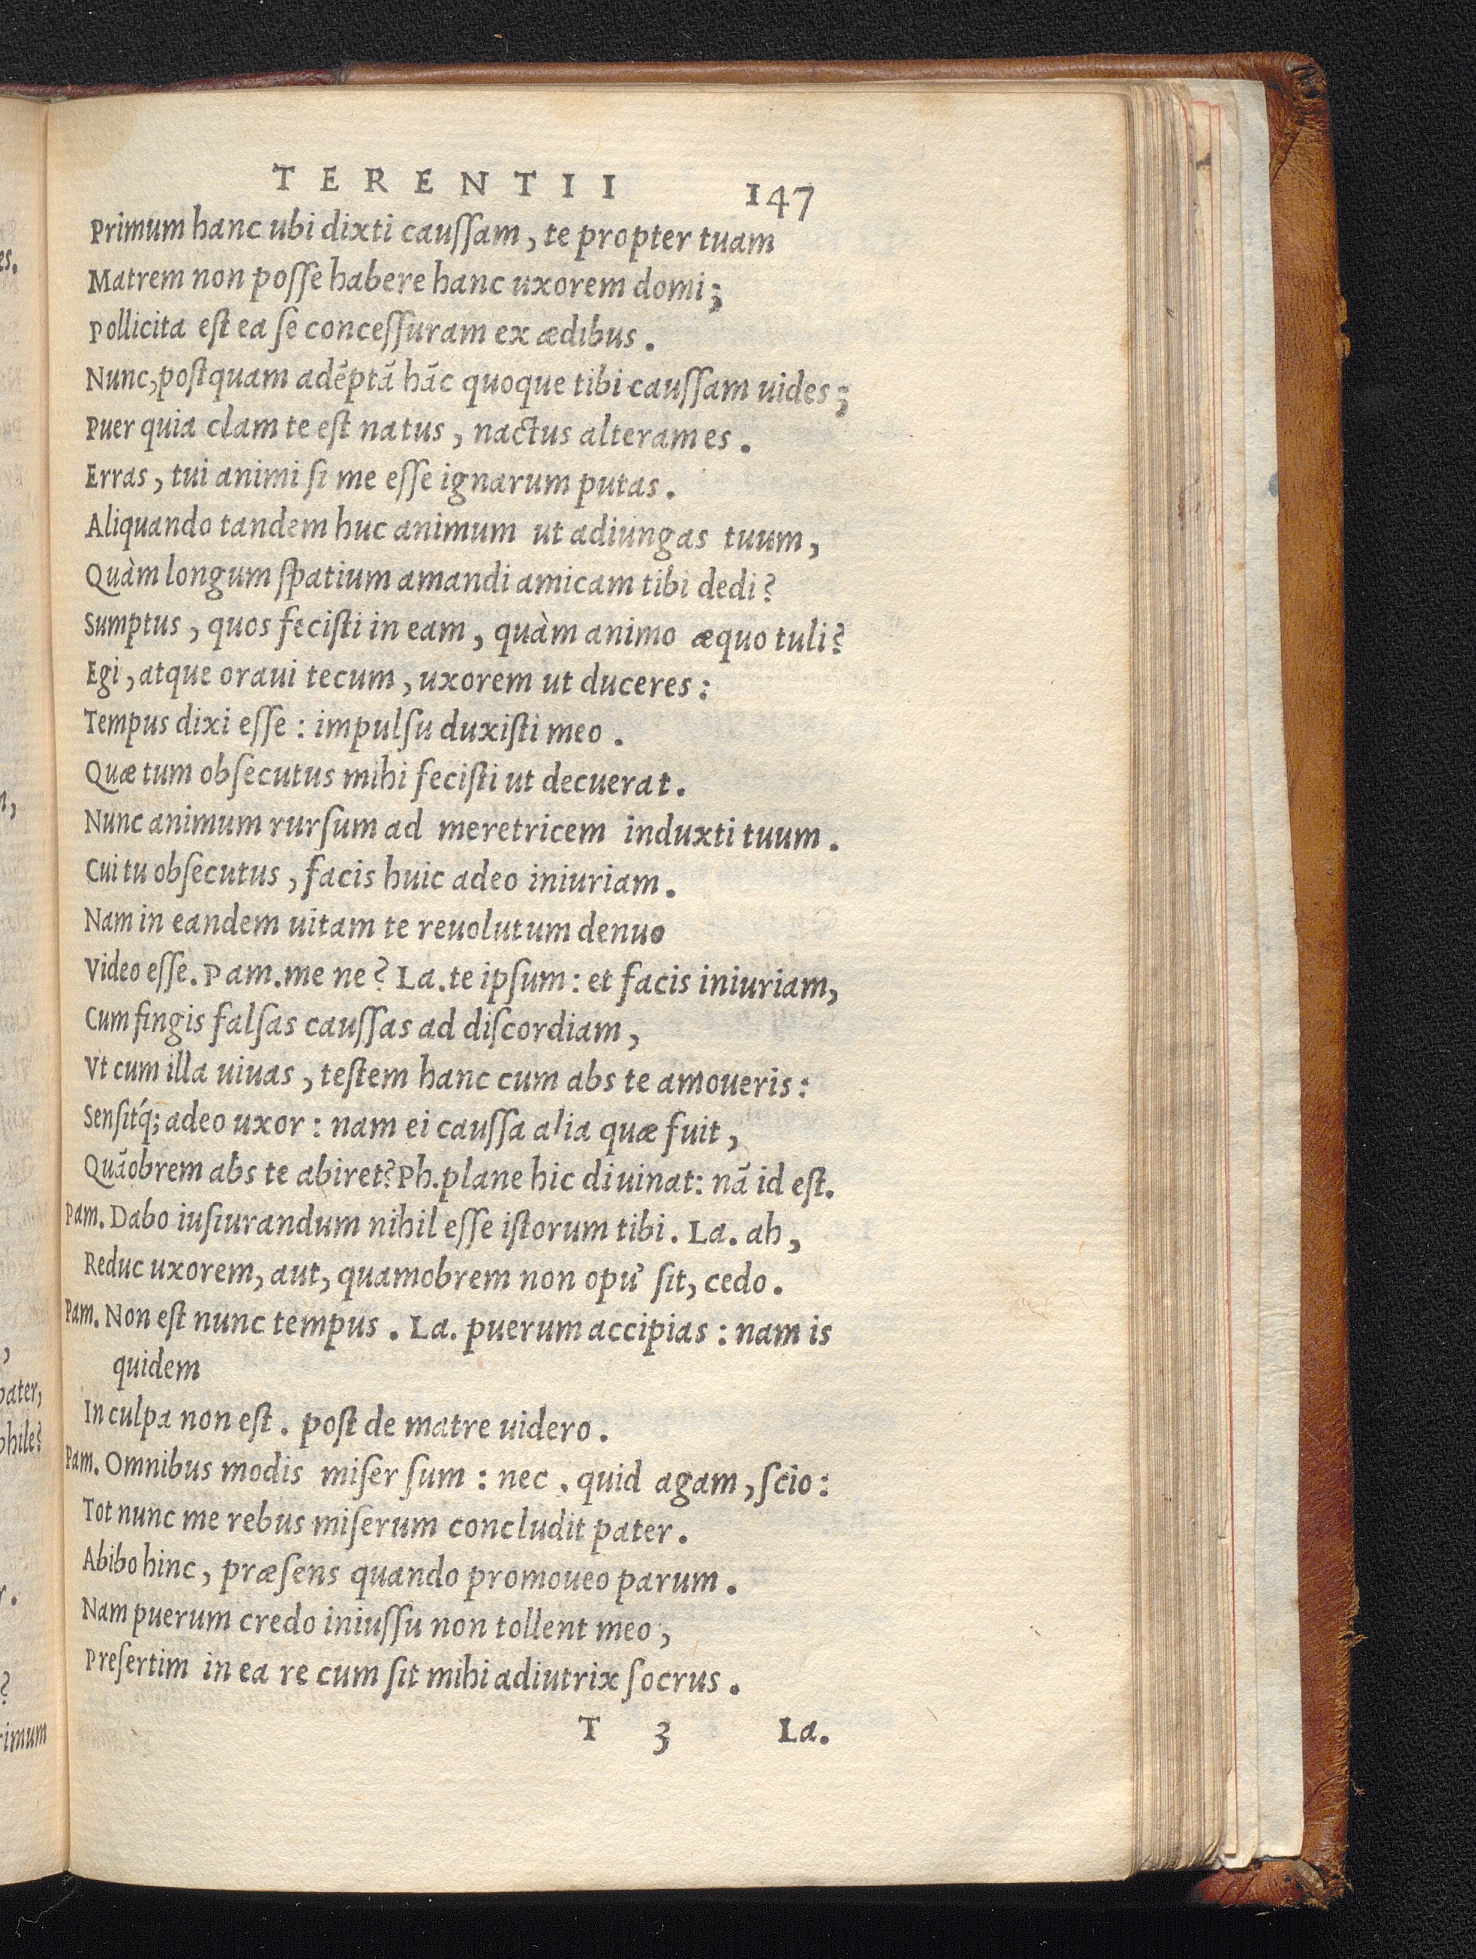 TERENTII 147
Primum hanc ubi dixti cauſſam, te propter tuam
Matrem non poſſe habere hanc uxorem domi;
Pollicita eſt ea ſe conceſſuram ex ædibus.
Nunc, poſtquam adẽptã hãc quoque tibi cauſſam uides;
Puer quia clam te eſt natus, nactus alteram es.
Erras, tui animi ſi me eſſe ignarum putas.
Aliquando tandem huc animum ut adiungas tuum,
Quàm longum ſpatium amandi amicam tibi dedi?
Sumptus, quos feciſti in eam, quàm animo æquo tuli?
Egi, atque oraui tecum, uxorem ut duceres:
Tempus dixi eſſe: impulſu duxiſti meo.
Quæ tum obſecutus mihi feciſti ut decuerat.
Nunc animum rurſum ad meretricem induxti tuum.
Cui tu obſecutus, facis huic adeo iniuriam.
Nam in eandem uitam te reuolutum denuo
Video eſſe. Pam. me ne? La. te ipſum: et facis iniuriam,
Cum fingis falſas cauſſas ad diſcordiam,
Vt cum illa uiuas, teſtem hanc cum abs te amoueris:
Senſitq́; adeo uxor: nam ei cauſſa alia quæ fuit,
Quãobrem abs te abiret? Ph. plane hic diuinat: nã id eſt.
Pam. Dabo iuſiurandum nihil eſſe iſtorum tibi. La. ah,
Reduc uxorem, aut, quamobrem non opu' ſit, cedo.
Pam. Non eſt nunc tempus. La. puerum accipias: nam is
quidem
In culpa non eſt. poſt de matre uidero.
Pam. Omnibus modis miſer ſum: nec, quid agam, ſcio:
Tot nunc me rebus miſerum concludit pater.
Abibo hinc, præſens quando promoueo parum.
Nam puerum credo iniuſſu non tollent meo,
Preſertim in ea re cum ſit mihi adiutrix ſocrus.
T 3 La.
es.
pater,
phile?
r.
?
rimum